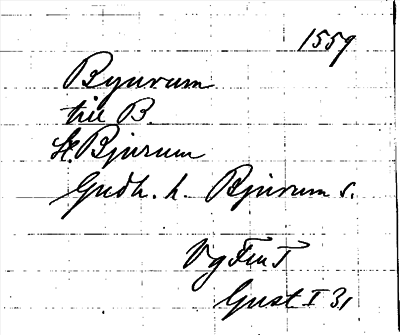 1559
Byurum
till B.
St Bjurum
Gudh. h. Bjurum s.
Vg Fm T
Gust I 31